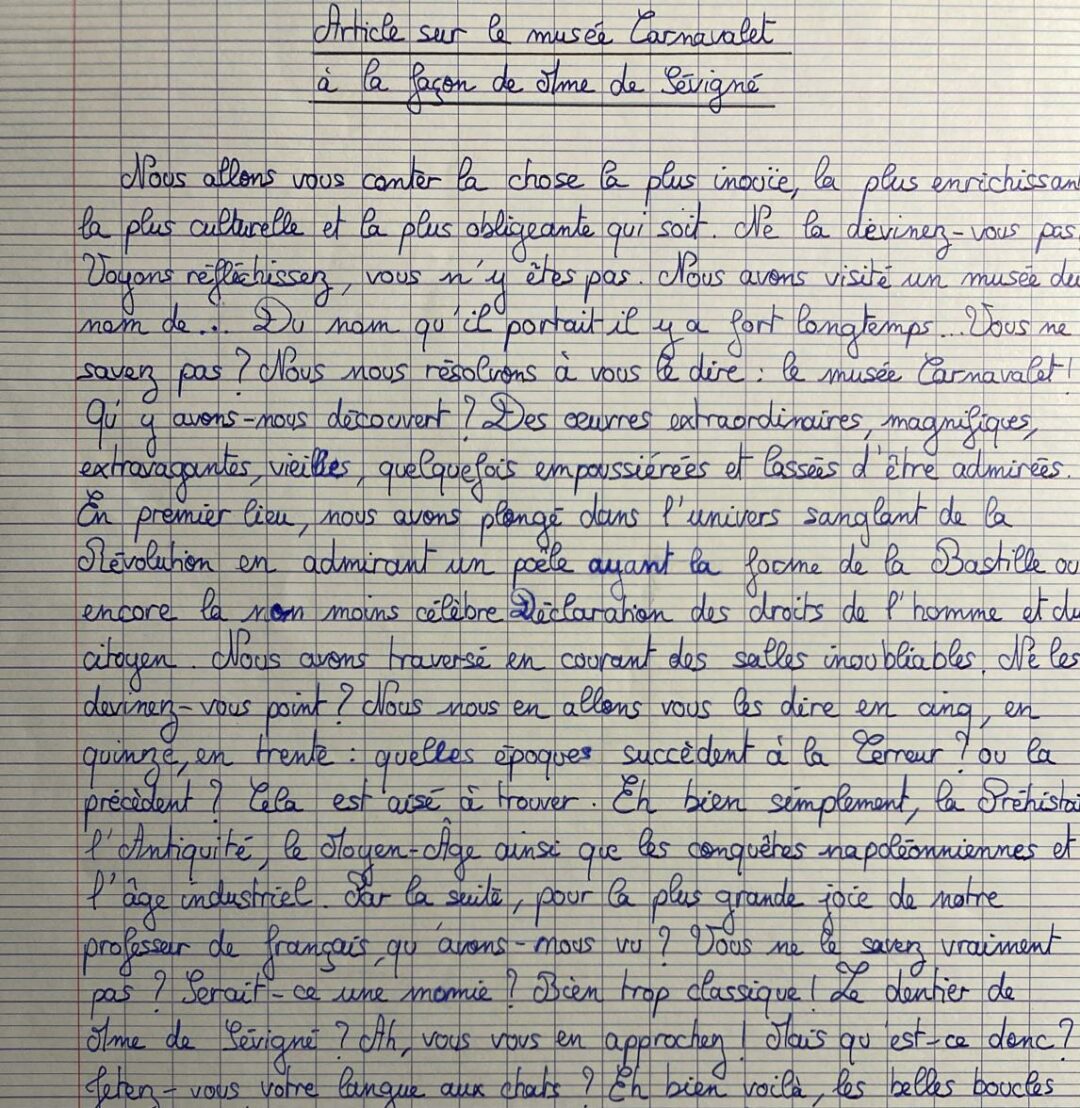 Article sur le musée Carnavalet
à la façon de Mme de Sévigné
Nous allons vous conter la chose la plus inouïe, la plus enrichissan
la plus culturelle et la plus obligeante qui soit. Ne la devinez-vous pas
Voyons réfléchissez, vous n'y êtes pas. Nous avons visité un musée du
nom de... Du nom qu'il portait il y a fort longtemps... Vous ne
savez pas ? Nous nous résolvons à vous le dire : le musée Carnavalet !
Qu'y avons-nous découvert ? Des œuvres extraordinaires, magnifiques,
extravagantes, vieilles, quelquefois empoussiérées et lassées d'être admirées.
En premier lieu, nous avons plongé dans l'univers sanglant de la
Révolution en admirant un poêle ayant la forme de la Bastille ou
encore la non moins célèbre Déclaration des droits de l'homme et du
citoyen. Nous avons traversé en courant des salles inoubliables. Ne les
devinez-vous point ? Nous nous en allons vous les dire en cinq, en
quinze, en trente : quelles époques succèdent à la Terreur ? ou la
précèdent ? Cela est aisé à trouver. Eh bien simplement, la Préhistoi
l'Antiquité, le Moyen-Âge ainsi que les conquêtes napoléonniennes et
l'âge industriel. Par la suite, pour la plus grande joie de notre
professeur de français, qu'avons-nous vu ? Vous ne le savez vraiment
pas ? Serait-ce une momie ? Bien trop classique ! Le dentier de
Mme de Sévigné ? Ah, vous vous en approchez ! Mais qu'est-ce donc ?
Jetez-vous votre langue aux chats ? Eh bien voilà, les belles boucles